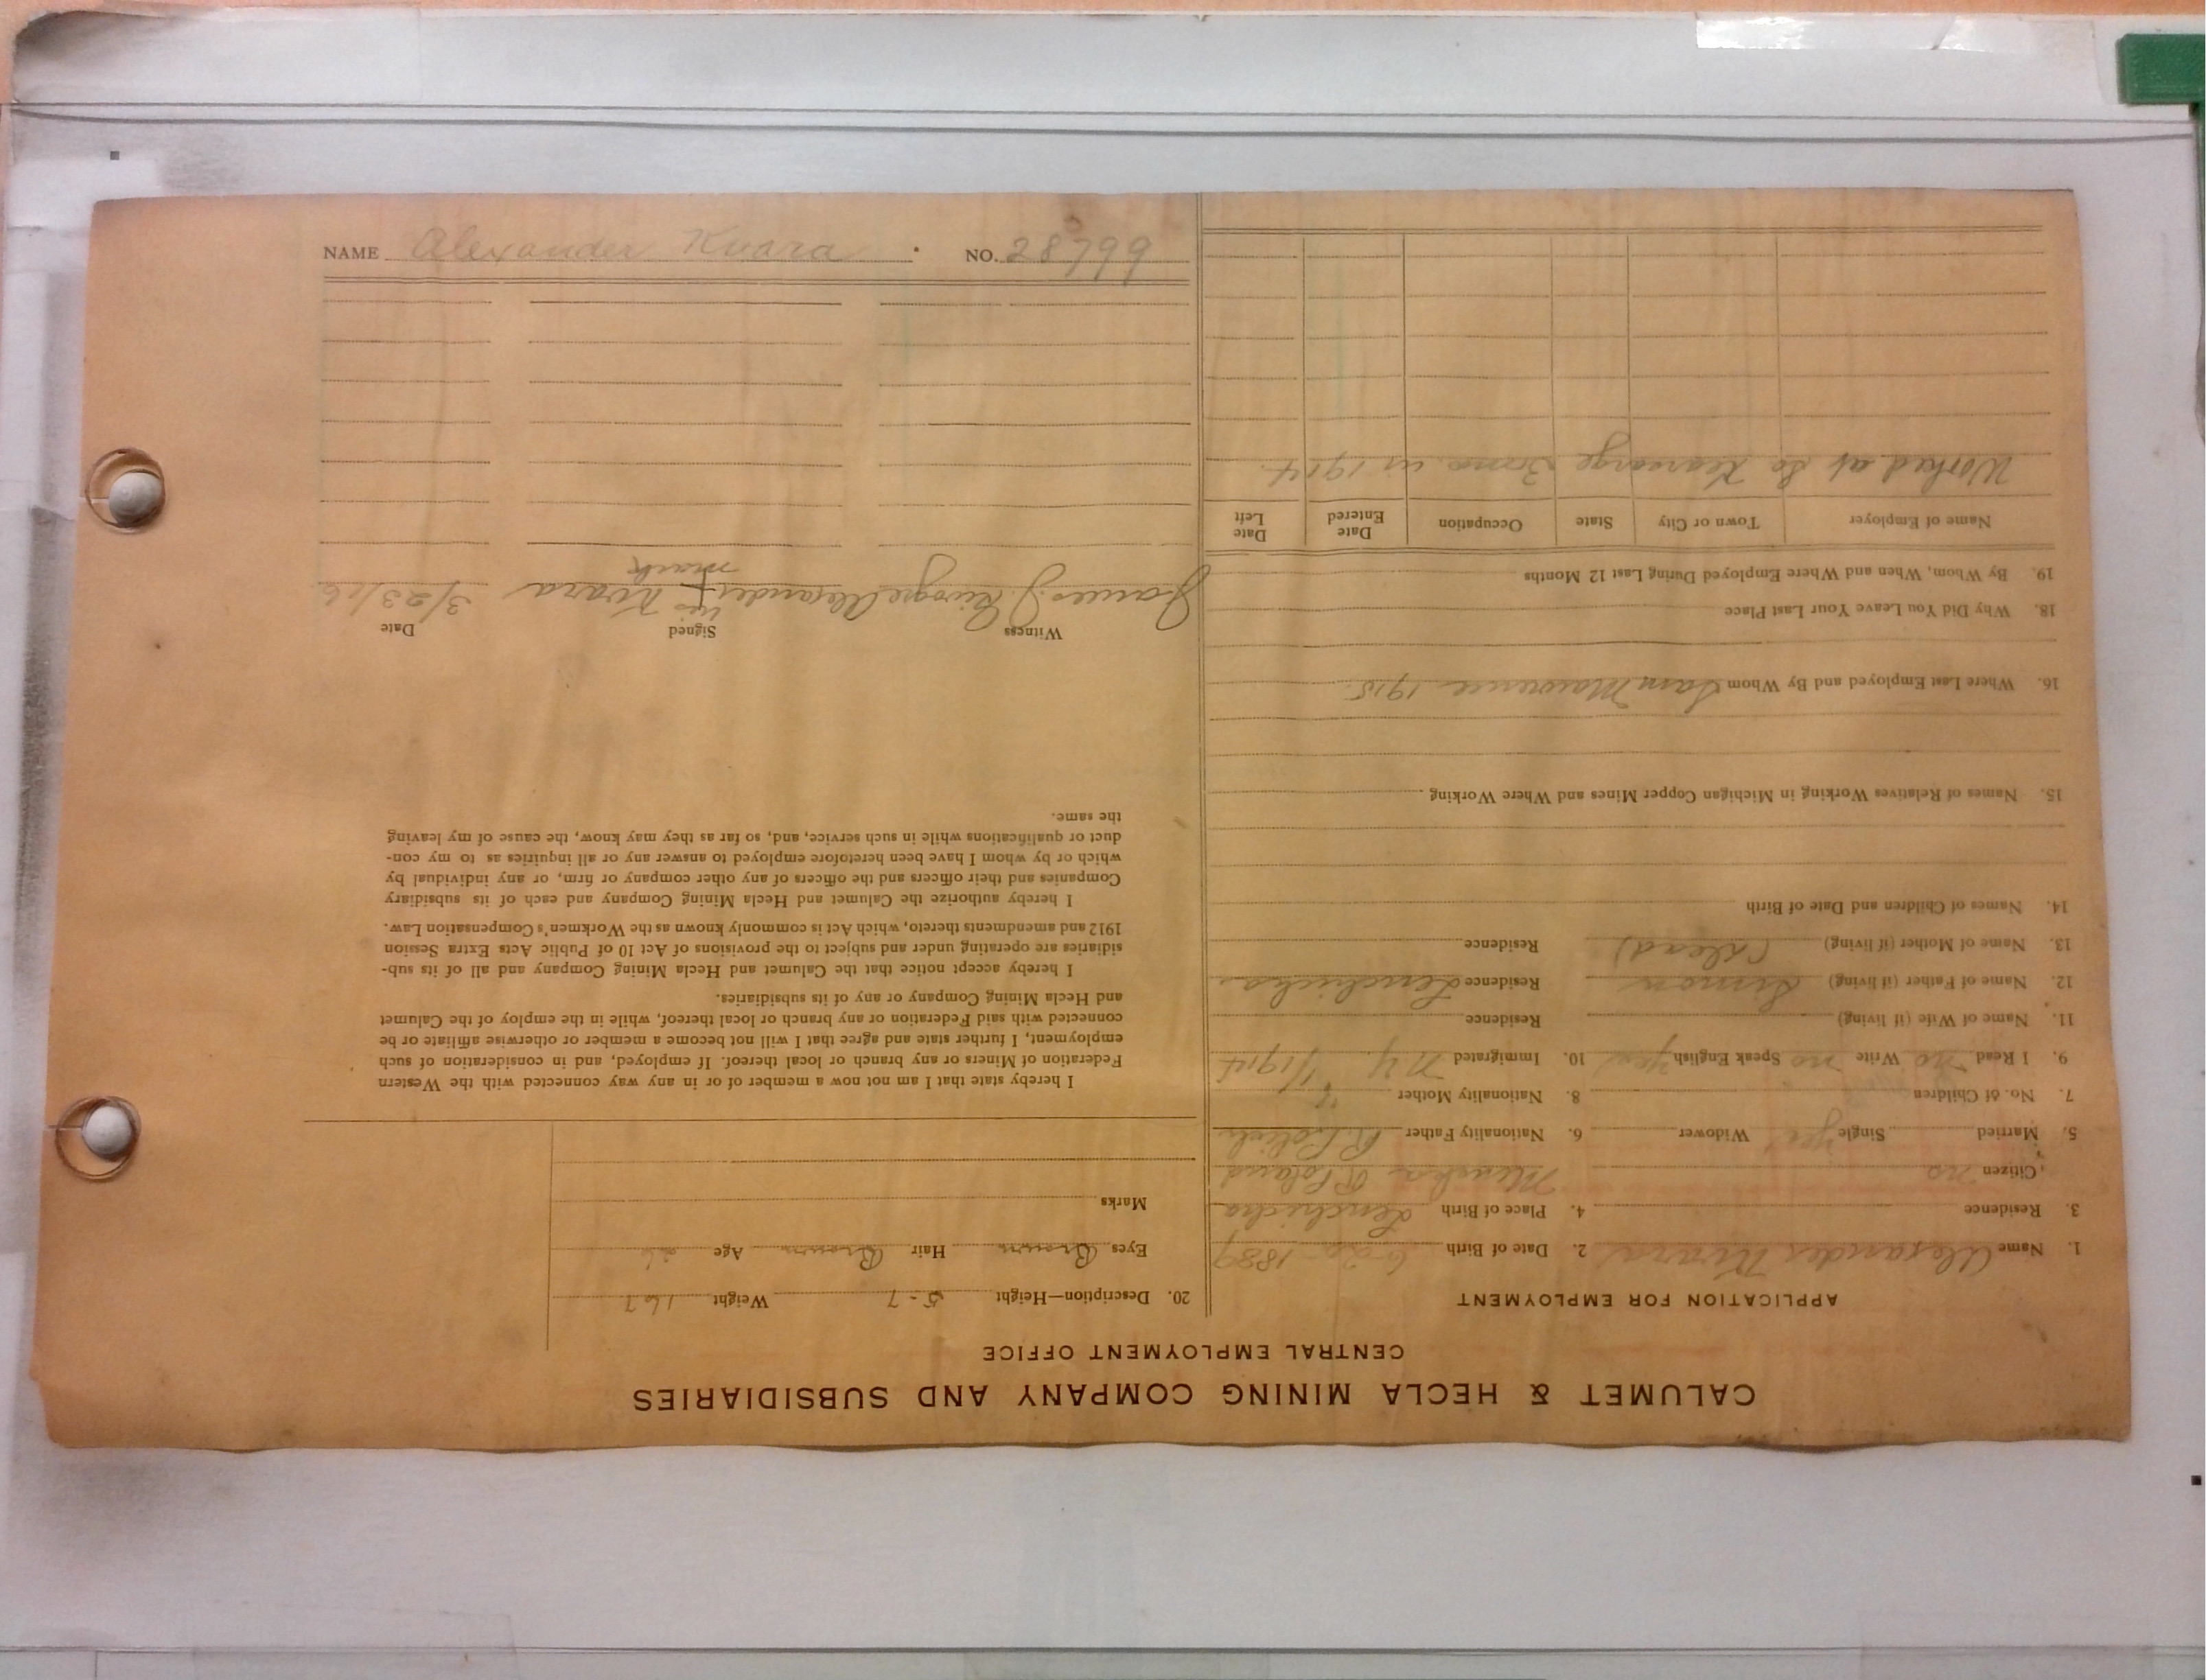 CALUMET & HECLA MINING COMPANY AND SUBSIDIARIES
CENTRAL EMPLOYMENT OFFICE
APPLICATION FOR EMPLOYMENT
1. Name Alexander Kvara 2. Date of Birth 6-20 1889
3. Residence 4. Place of Birth Lenchicha
Citizen no R Poland
5. Married Single yes Widower 6. Nationality Father R. Polish
7. No. of Children 8. Nationality Mother "
9. I Read no Write no Speak English yes 10. Immigrated N Y 1/1914
11. Name of Wife (if living) Residence
12. Name of Father (if living) Simon Residence Lenchicha
13. Name of Mother (if living) (dead) Residence
14. Names of Children and Date of Birth
15. Names of Relatives Working in Michigan Copper Mines and Where Working
16. Where Last Employed and By Whom Sam 1915.
18. Why Did You Leave Your Last Place
19. By Whom, When and Where Employed During Last 12 Months
Name of Employer Town or City State Occupation Date Entered Date Left
Worked at So Kearsarge 3 mos. in 1914.
20. Description—Height 5-7 Weight 167
Eyes Brown Hair Brown Age 26
Marks
I hereby state that I am not now a member of or in any way connected with the Western
Federation of Miners or any branch or local thereof. If employed, and in consideration of such
employment, I further state and agree that I will not become a member or otherwise affiliate or be
connected with said Federation or any branch or local thereof, while in the employ of the Calumet
and Hecla Mining Company or any of its subsidiaries.
I hereby accept notice that the Calumet and Hecla Mining Company and all of its sub-
sidiaries are operating under and subject to the provisions of Act 10 of Public Acts Extra Session
1912 and amendments thereto, which Act is commonly known as the Workmen's Compensation Law.
I hereby authorize the Calumet and Hecla Mining Company and each of its subsidiary
Companies and their officers and the officers of any other company or firm, or any individual by
which or by whom I have been heretofore employed to answer any or all inquiries as to my con-
duct or qualifications while in such service, and, so far as they may know, the cause of my leaving
the same.
Witness Signed Date
his
James J. Alexander + Kvara 3/23/16
mark
NAME Alexander Kvara NO. 28799